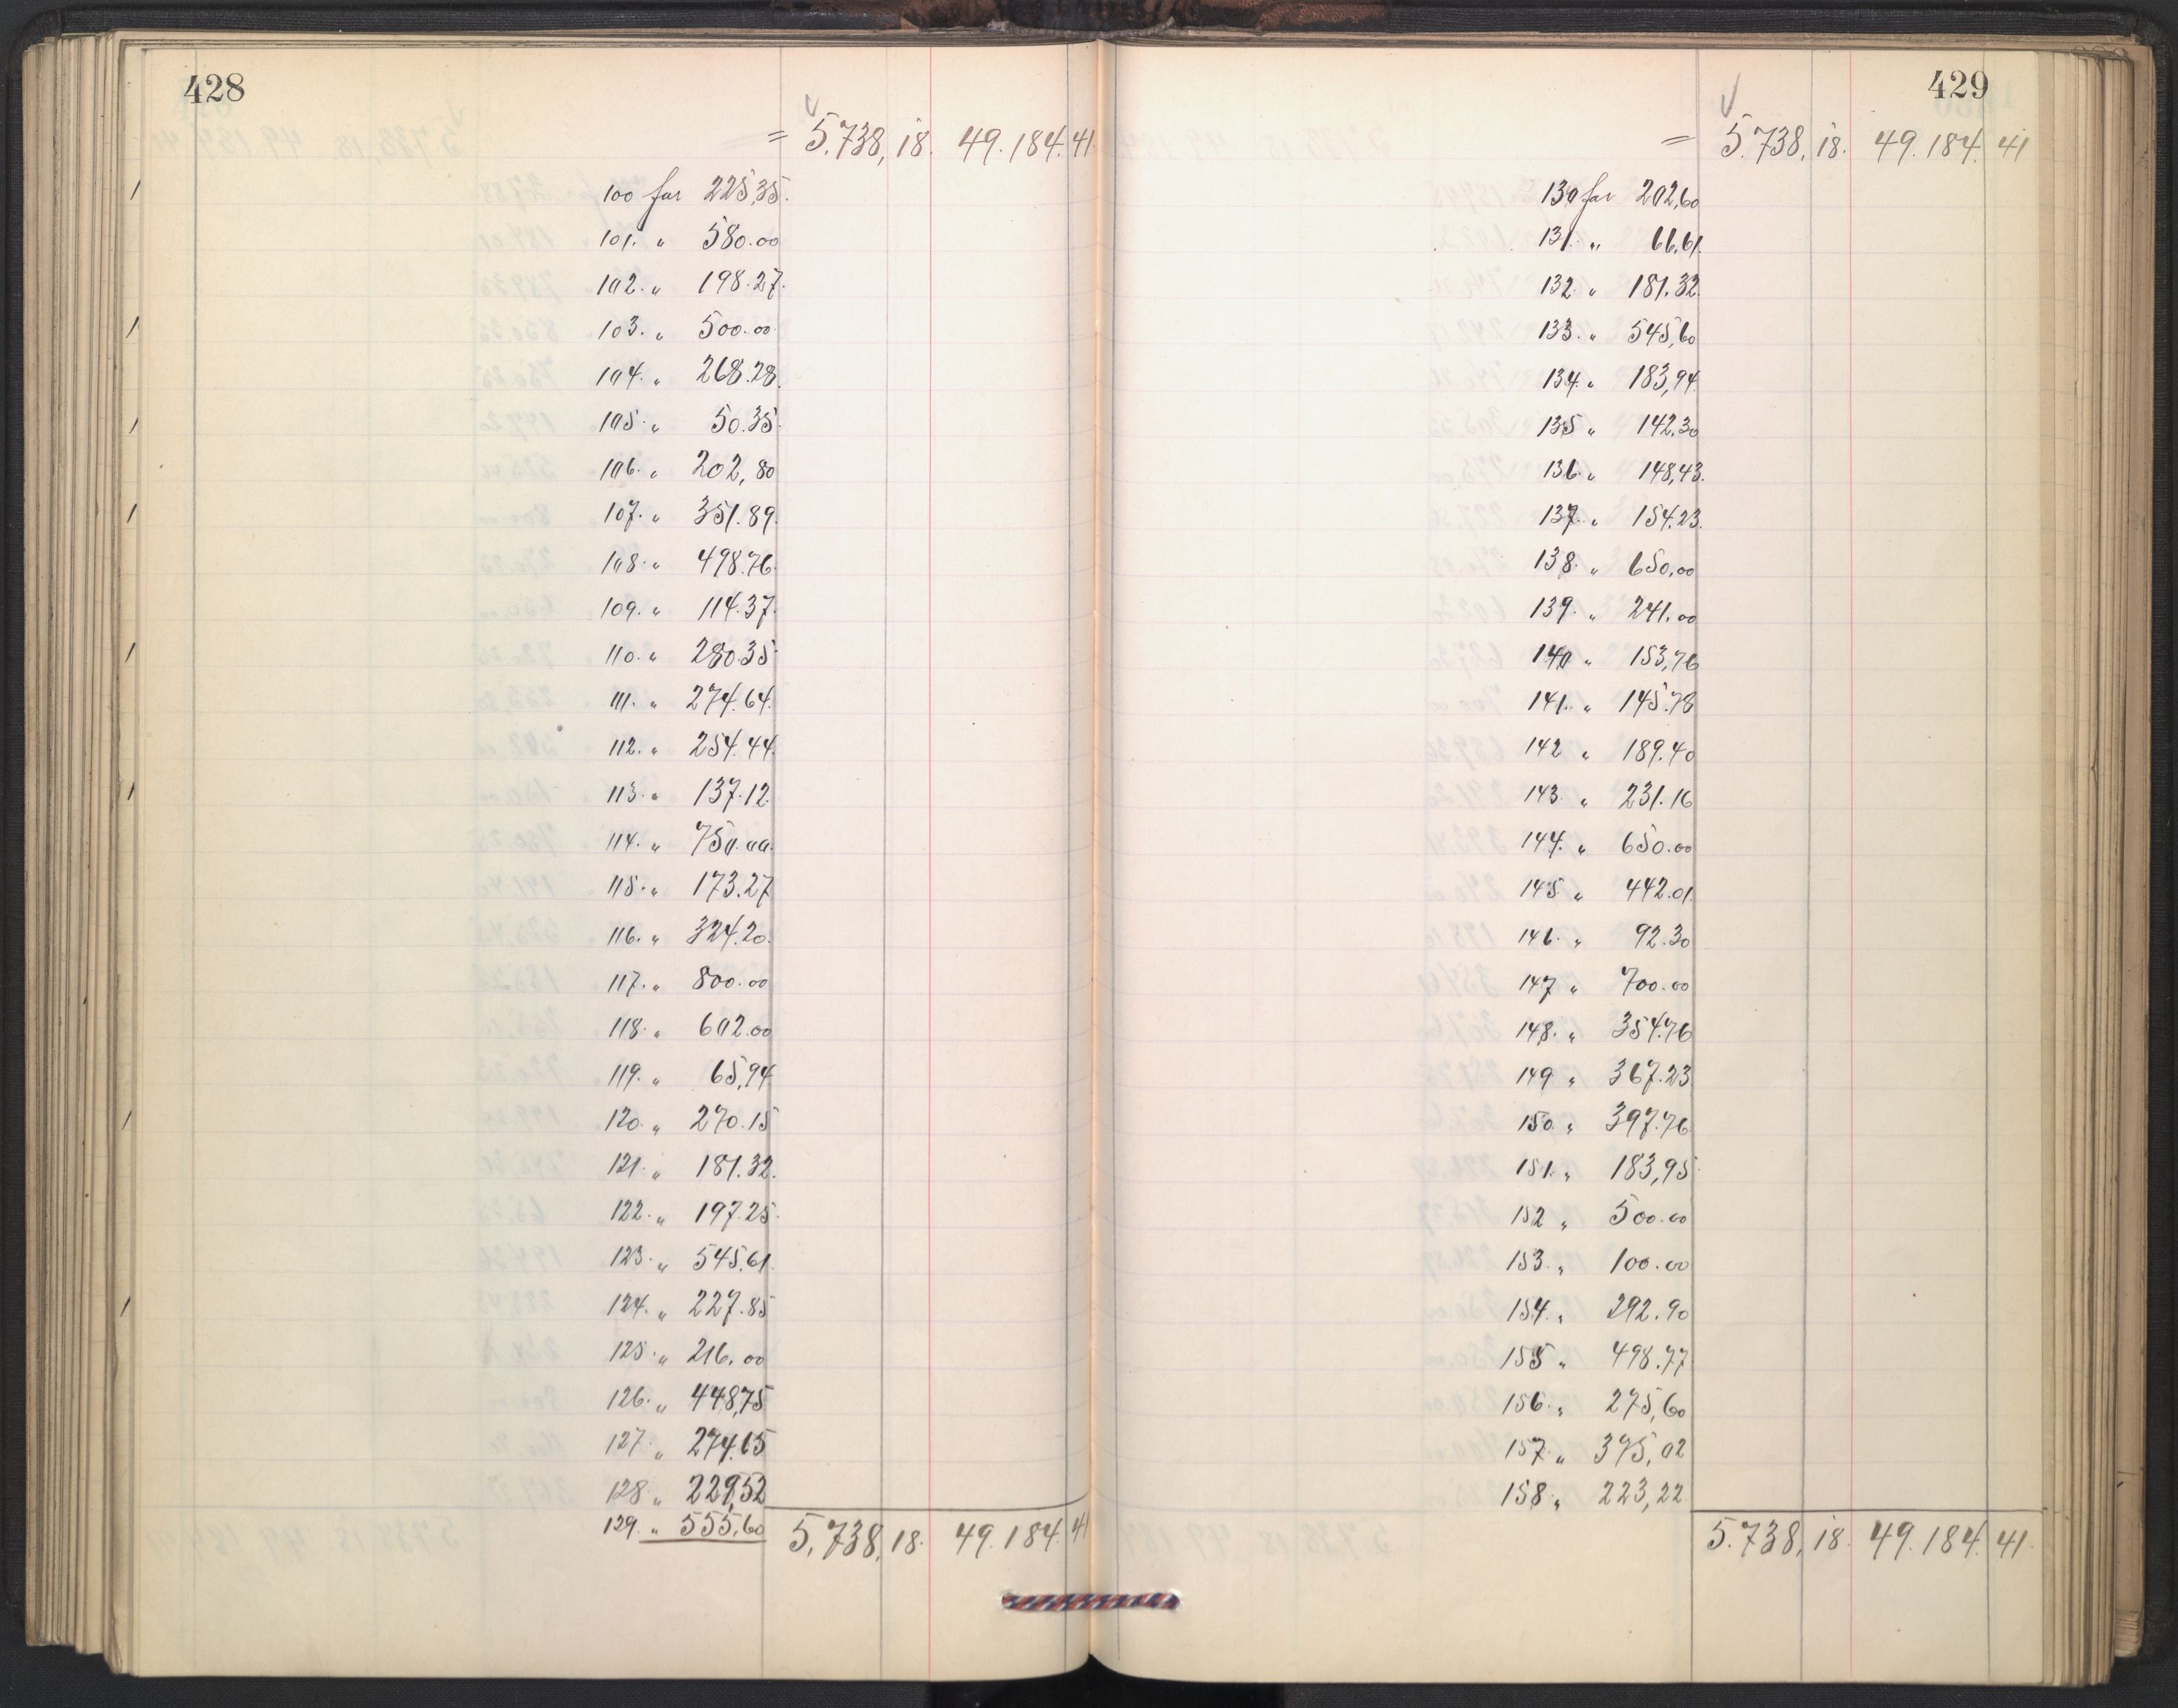 428
= 5.738,18. 49.184.41.
100 for 225,35.
101. " 580.00
102. " 198.27.
103. " 500.00
104. " 268.28.
105. " 50.35.
106. " 202,80
107. " 351.89.
108. " 498.76.
109. " 114.37.
110. " 280.35
111. " 274.64.
112. " 254.44.
113. " 137.12.
114. " 750.00.
115. " 173.27
116. " 324.20.
117. " 800.00
118. " 602.00
119. " 65,94
120. " 270.15
121. " 181.32.
122. " 197.25.
123. " 545.61.
124. " 227.85
125. " 216.00
126. " 448,75
127. " 274.65
128 " 229,52
129. " 555,60 5.738,18. 49.184.41
429
= 5.738,18. 49.184.41
130 for 202,60
131. " 66.61.
132. " 181.32.
133. " 545,60
134. " 183,94.
135 " 142.30
136. " 148,43.
137. " 154.23.
138. " 650,00
139. " 241.00
140 " 153,76
141. " 145.78
142 " 189.40
143. " 231.16
144. " 650.00
145 " 442.01.
146. " 92.30
147 " 700.00
148. " 354.76
149 " 367.23
150. " 397.76
151. " 183,95
152 " 500.00
153. " 100.00
154. " 292.90
155 " 498.77
156. " 275,60
157. " 375,02
158. " 223,22
5.738,18. 49.184.41.